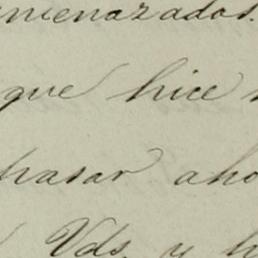 amenazados.
que hice
pasar aho
Vds. y h